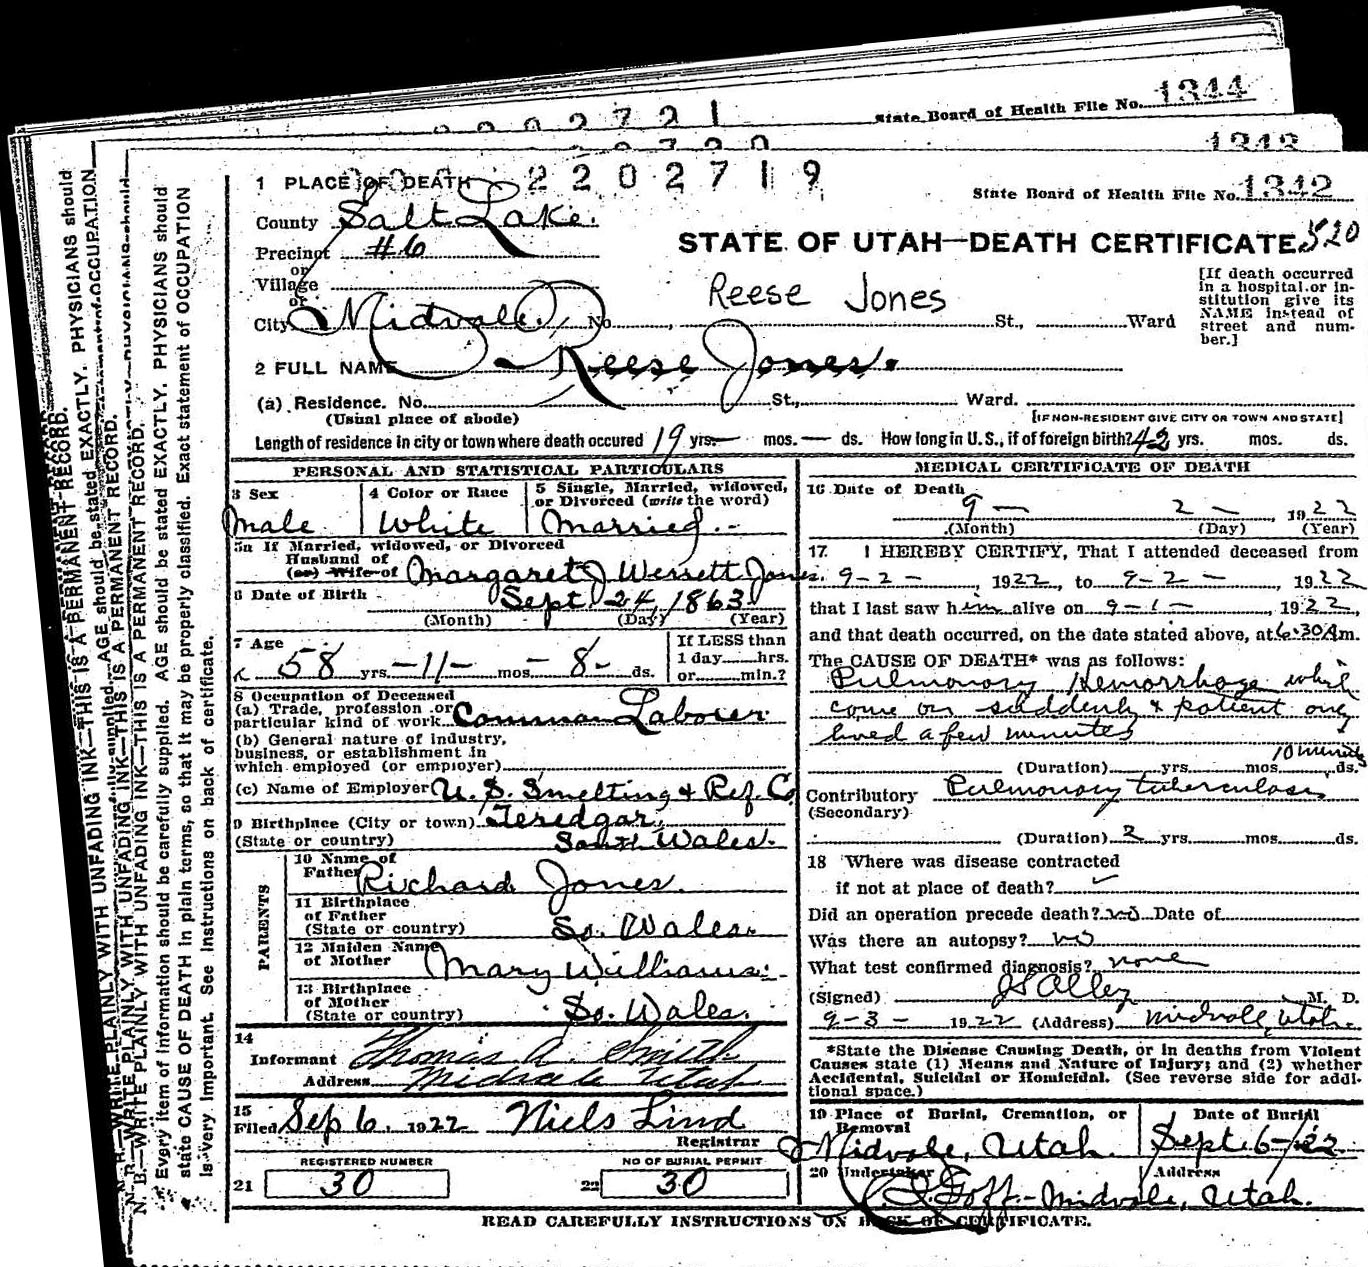 State Board of Health File No. 1344
2202721
1343
2202719
State Board of Health File No. 1342
1 PLACE OF DEATH
County Salt Lake.
STATE OF UTAH—DEATH CERTIFICATE 520
Precinct #6
or
Village
or
City Midvale. No. St., Ward
Reese Jones
[If death occurred in a hospital or institution give its NAME instead of street and number.]
2 FULL NAME Reese Jones.
(a) Residence. No. St., Ward.
(Usual place of abode) [IF NON-RESIDENT GIVE CITY OR TOWN AND STATE]
Length of residence in city or town where death occured 19 yrs.— mos.— ds. How long in U.S., if of foreign birth? 42 yrs. mos. ds.
PERSONAL AND STATISTICAL PARTICULARS
3 Sex
Male
4 Color or Race
White
5 Single, Married, widowed, or Divorced (write the word)
Married.-
5a If Married, widowed, or Divorced
Husband of
(or) Wife of Margaret J Werrett Jones.
6 Date of Birth Sept. 24, 1863
(Month) (Day) (Year)
7 Age
58 yrs —11— mos — 8 - ds.
If LESS than
1 day hrs.
or min.?
8 Occupation of Deceased
(a) Trade, profession or
particular kind of work Common Laborer
(b) General nature of industry,
business, or establishment in
which employed (or employer)
(c) Name of Employer U. S. Smelting & Ref. Co
9 Birthplace (City or town) Teredgar,
(State or country) South Wales.
PARENTS
10 Name of
Father Richard Jones.
11 Birthplace
of Father
(State or country) So. Wales.
12 Maiden Name
of Mother Mary Williams.
13 Birthplace
of Mother
(State or country) So. Wales.
14
Informant Thomas A. Smith
Address Midvale Utah
15
Filed Sep 6, 1922 Niels Lind
Registrar
REGISTERED NUMBER
21 30
NO OF BURIAL PERMIT
22 30
MEDICAL CERTIFICATE OF DEATH
16 Date of Death
9 — 2 — 1922
(Month) (Day) (Year)
17 I HEREBY CERTIFY, That I attended deceased from
9-2-, 1922, to 9-2-, 1922
that I last saw him alive on 9-1-, 1922,
and that death occurred, on the date stated above, at 6:30 Am.
The CAUSE OF DEATH* was as follows:
Pulmonary Hemorrhage which
come on suddenly & patient only
lived a few minutes
10 minutes
(Duration) yrs. mos. ds.
Contributory Pulmonary tuberculosis
(Secondary)
(Duration) 2 yrs. mos. ds.
18 Where was disease contracted
if not at place of death?
Did an operation precede death? no Date of
Was there an autopsy? no
What test confirmed diagnosis? none
(Signed) M. D.
9-3- 1922 (Address) Midvale, Utah.
*State the Disease Causing Death, or in deaths from Violent
Causes state (1) Means and Nature of Injury; and (2) whether
Accidental, Suicidal or Homicidal. (See reverse side for additional space.)
19 Place of Burial, Cremation, or
Removal
Midvale, Utah.
Date of Burial
Sept. 6-/22
20 Undertaker Address
Goff.- Midvale, Utah.
READ CAREFULLY INSTRUCTIONS ON BACK OF CERTIFICATE.
N. B.—WRITE PLAINLY WITH UNFADING INK—THIS IS A PERMANENT RECORD.
Every item of information should be carefully supplied. AGE should be stated EXACTLY. PHYSICIANS should
state CAUSE OF DEATH in plain terms, so that it may be properly classified. Exact statement of OCCUPATION
is very important. See instructions on back of certificate.